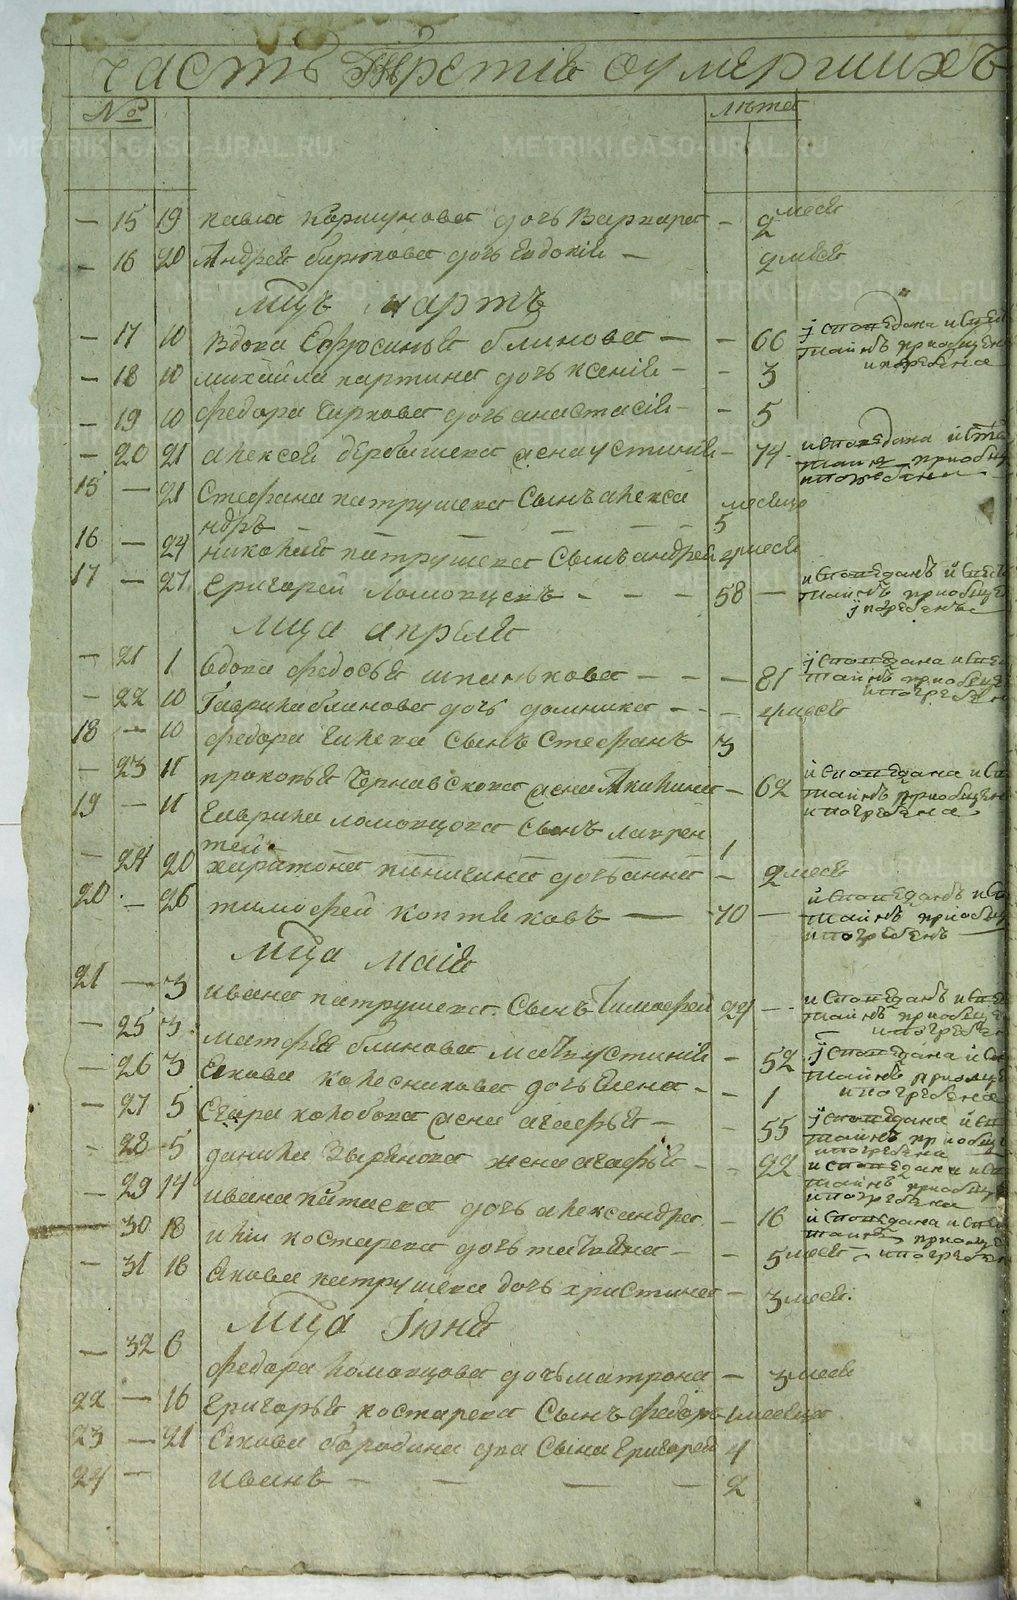 часть Третія оумершихъ
№ лѣта
— 15 19 павла коршунова дочь Варвара — 2 месец
— 16 20 Андрея бирюкова дочь Евдокія — 2 месец
Мцъ мартъ
— 17 10 вдова Ефросинья блинова — — 66 исповедана и
таинъ приобщена
и погребена
— 18 10 михайла партина дочь ксенія — — 3
— 19 10 федора чиркова дочь анастасія — — 5
— 20 21 алексея дербышева жена устинія — 74 исповедана и
таинъ приобщ
и погребена
15 — 21 Стефана патрушева Сынъ алекса месяцо
ндръ — — — 5
16 — 24 николая патрушева Сынъ андрей 4 месец
17 — 27 Григорей Ломовцевъ — — — 58 — исповеданъ и
таинъ приобще
и погребенъ
Мца апреля
— 21 1 вдова федосья шпанькова — — — 81 исповедана и
таинъ приобще
и погребена
— 22 10 Гаврила блинова дочь домника — — 4 месец
18 — 10 федора Сынъ Стефанъ 3
— 23 11 прокопья Чернавскова жена Акилина — 62 исповедана и
таинъ приобщена
и погребена
19 — 11 Гаврила ломовцова Сынъ лаврен
тей 1
— 24 20 харитона пиничина дочь анна — 2 месец
20 — 26 тимофей коптяковъ — 70 — исповеданъ и
таинъ приобщ
и погребенъ
Мца маія
21 — 3 ивана патрушева Сынъ Тимофей 29 — исповеданъ и
таинъ приобще
и погребен
— 25 3 матфея блинова мать устинія — 52 исповедана и
таинъ приобще
и погребена
— 26 3 Якова колесникова дочь Елена — — 1
— 27 5 Егора колобова жена агафья — — 55 исповедана и
таинъ приобще
и погребена
— 28 5 данила Зырянова жена агафья — 22 исповедана и
таинъ приобще
и погребена
— 29 14 ивана пятыева дочь александра — 16 исповедана и
таинъ приобще
и погребен
— 30 18 иліи костарева дочь татьяна — — 5 месец
— 31 18 Якова патрушева дочь христина — 3 месец
Мца Іюня
— 32 6 федора ломовцова дочь матрона — 3 месец
22 — 16 Григорья костарева Сынъ федоръ 1 месеца
23 — 21 Якова бородина два Сына Григорей 4
24 — иванъ — — — — 2